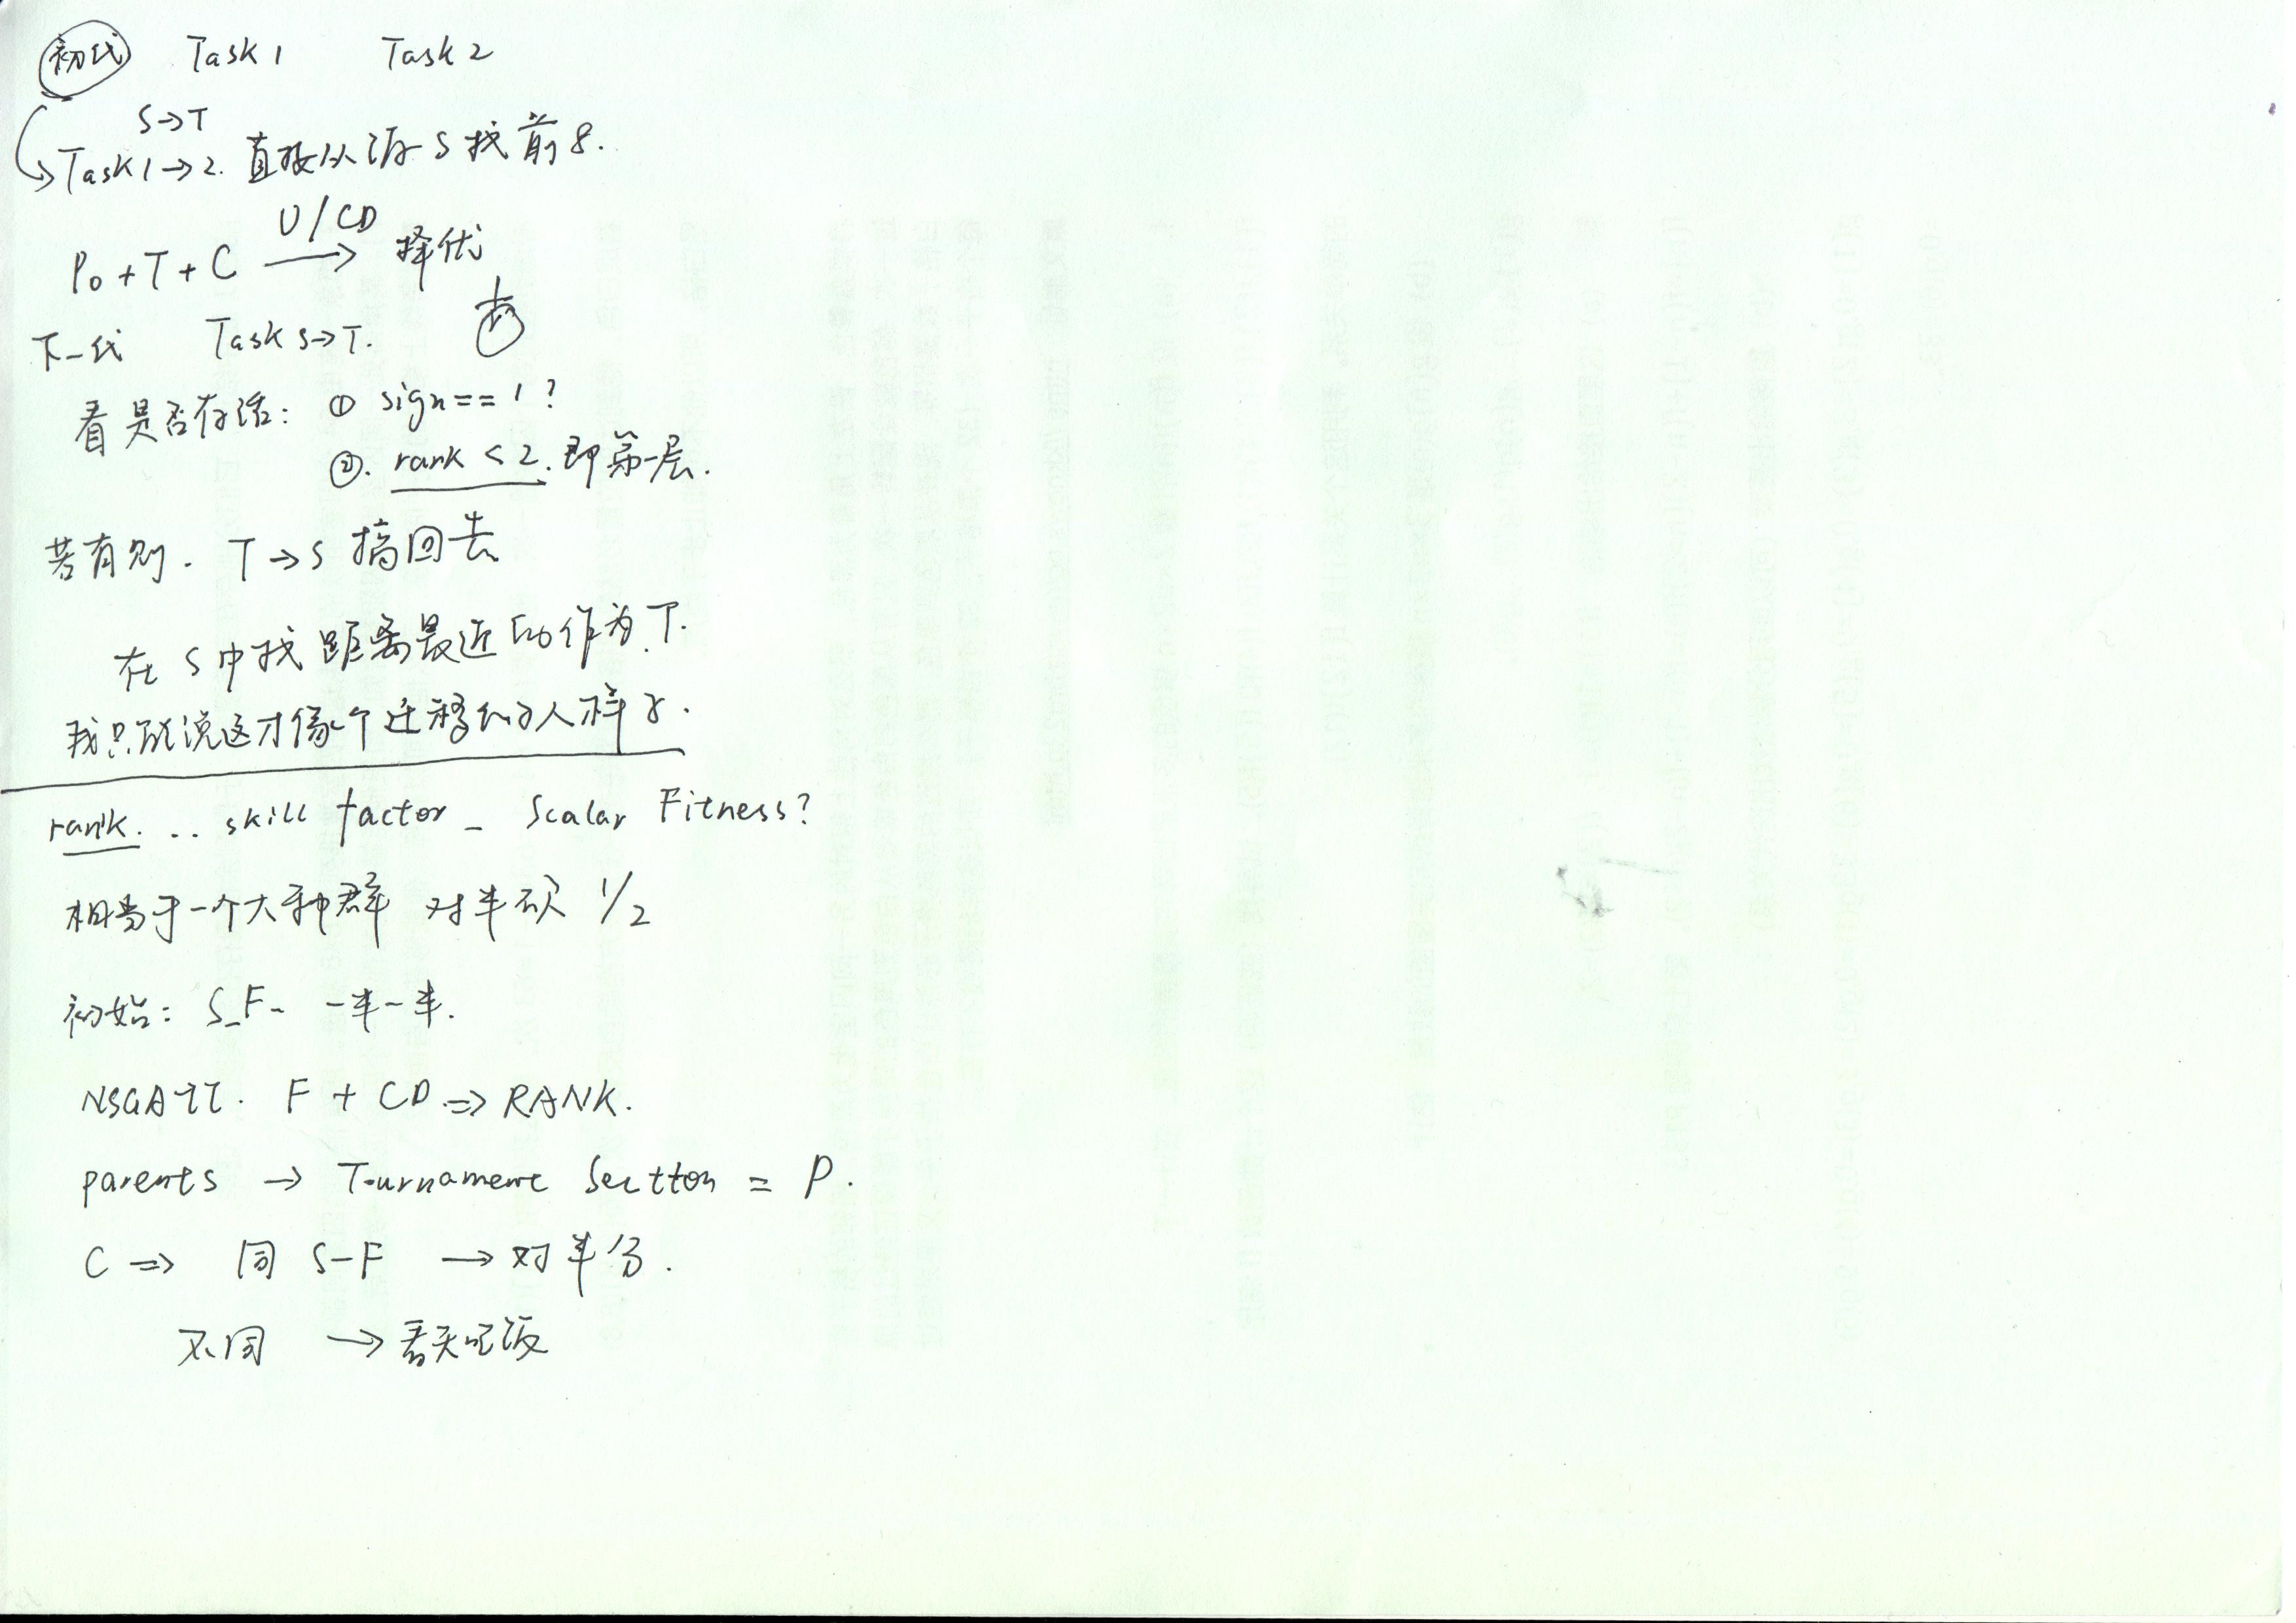 初代 Task 1 Task 2
S→T
Task 1→2. 直接从源S找前8.
P0+T+C U/CD → 择优
下一代 Task S→T.
看是否存活: ① sign==1?
②. rank<2. 即第一层.
若有则. T→S 搞回去
在S中找距离最近的作为T.
我只能说这才像个迁移的人样子.
rank. .. skill factor - Scalar Fitness?
相当于一个大种群 对半砍 1/2
初始: S_F- 一半一半.
NSGAII. F + CD => RANK.
parents → Tournament Section = P.
C => 同 S-F → 对半分.
不同 → 看天吃饭